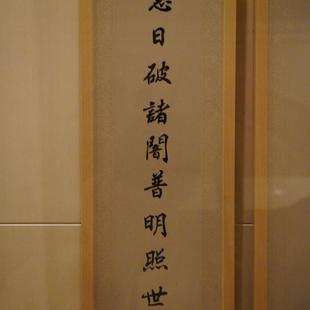 日破諸闇普明照世